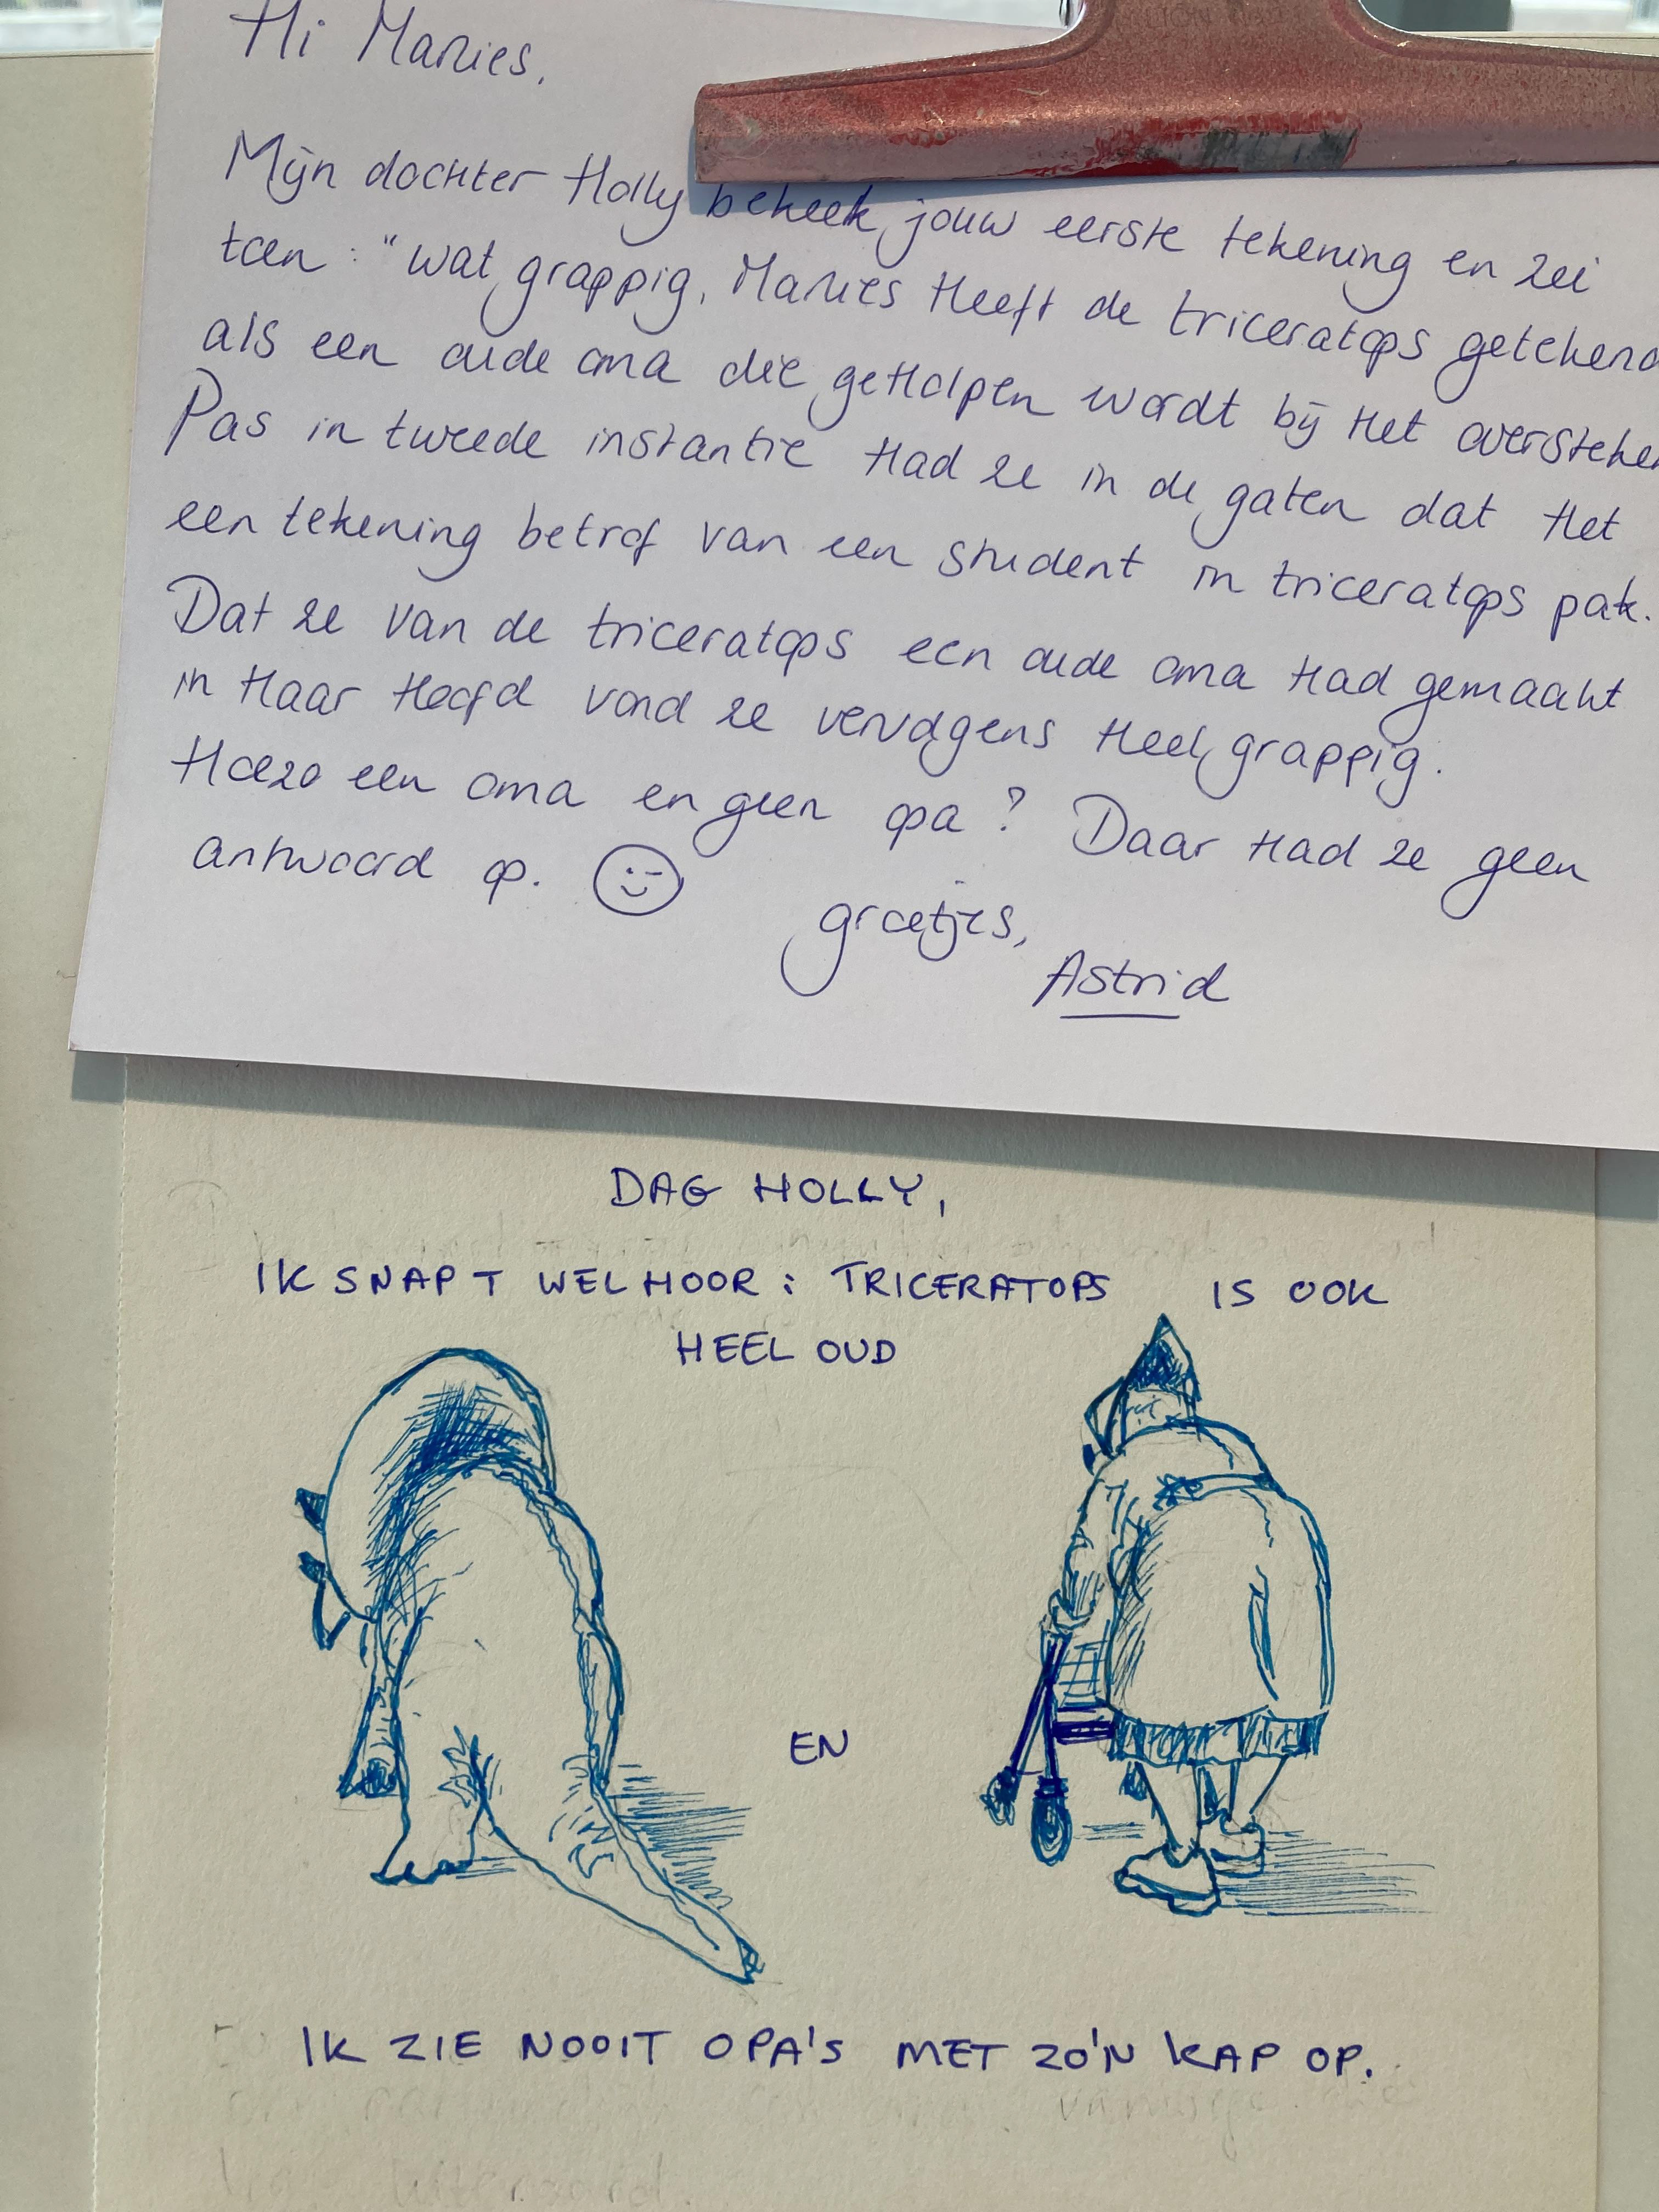 Hi Marlies,
Mijn dochter Holly bekeek jouw eerste tekening en zei
toen: "wat grappig, Marlies Heeft de triceratops getekend
als een oude oma die geHolpen wordt bij Het oversteken
Pas in tweede instantie Had ze in de gaten dat Het
een tekening betrof van een student in triceratops pak.
Dat ze van de triceratops een oude oma Had gemaakt
in Haar Hoofd vond ze vervolgens Heel grappig.
Hoezo een oma en geen opa? Daar Had ze geen
antwoord op.
groetjes,
Astrid
DAG HOLLY,
IK SNAP T WEL HOOR: TRICERATOPS IS OOK
HEEL OUD
EN
IK ZIE NOOIT OPA'S MET ZO'N KAP OP.